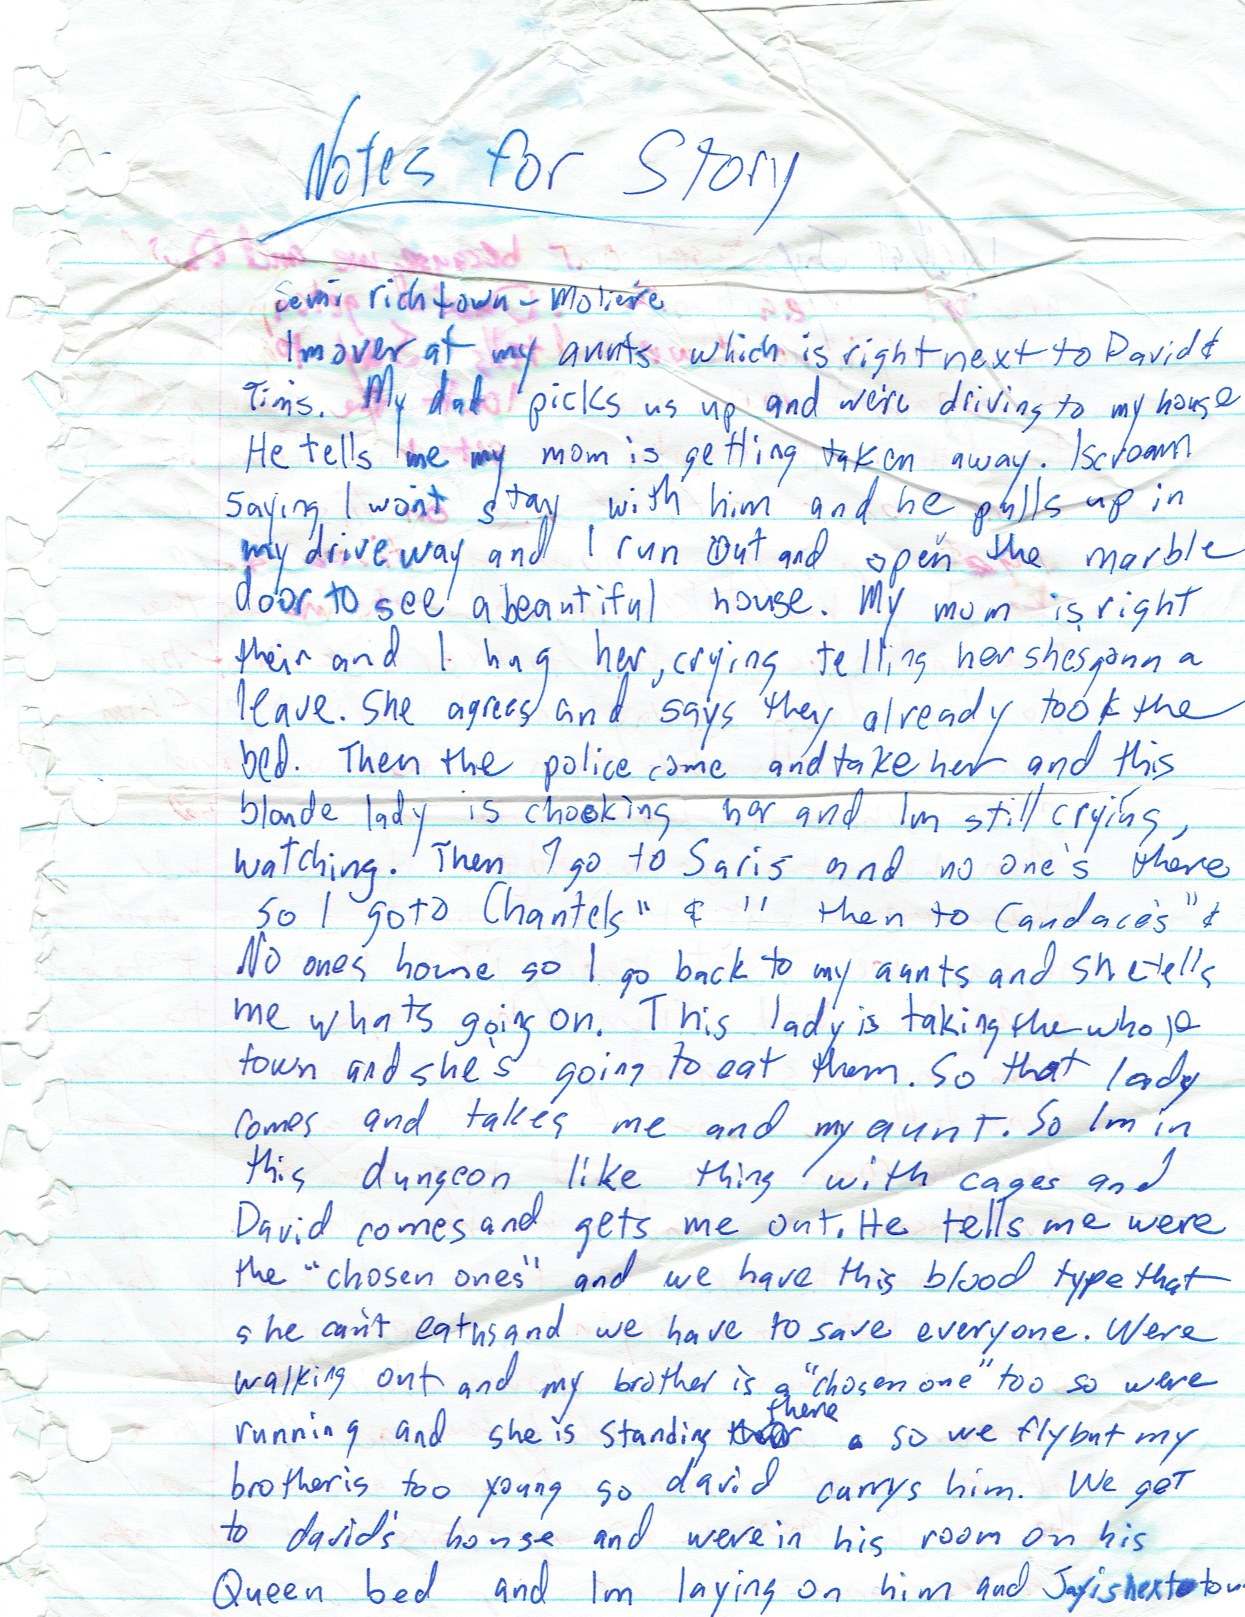 Notes for Story
Semi rich town - Moliere
Im over at my aunts which is right next to David &
Tims. My dad picks us up and we're driving to my house
He tells me my mom is getting taken away. I scream
saying I won't stay with him and he pulls up in
my driveway and I run out and open the marble
door to see a beautiful house. My mom is right
their and I hug her, crying telling her shes gonna
leave. She agrees and says they already took the
bed. Then the police come and take her and this
blonde lady is chooking her and Im still crying,
watching. Then I go to Saris and no one's there
so I go to Chantels " & " then to Candace's " &
No ones home so I go back to my aunts and she tells
me whats going on. This lady is taking the whole
town and she's going to eat them. So that lady
comes and takes me and my aunt. So Im in
this dungeon like thing with cages and
David comes and gets me out. He tells me were
the "chosen ones" and we have this blood type that
she can't eat us and we have to save everyone. Were
walking out and my brother is a "chosen one" too so were
running and she is standing there so we fly but my
brother is too young so david carrys him. We get
to david's house and were in his room on his
Queen bed and Im laying on him and Jay is next to
because me and